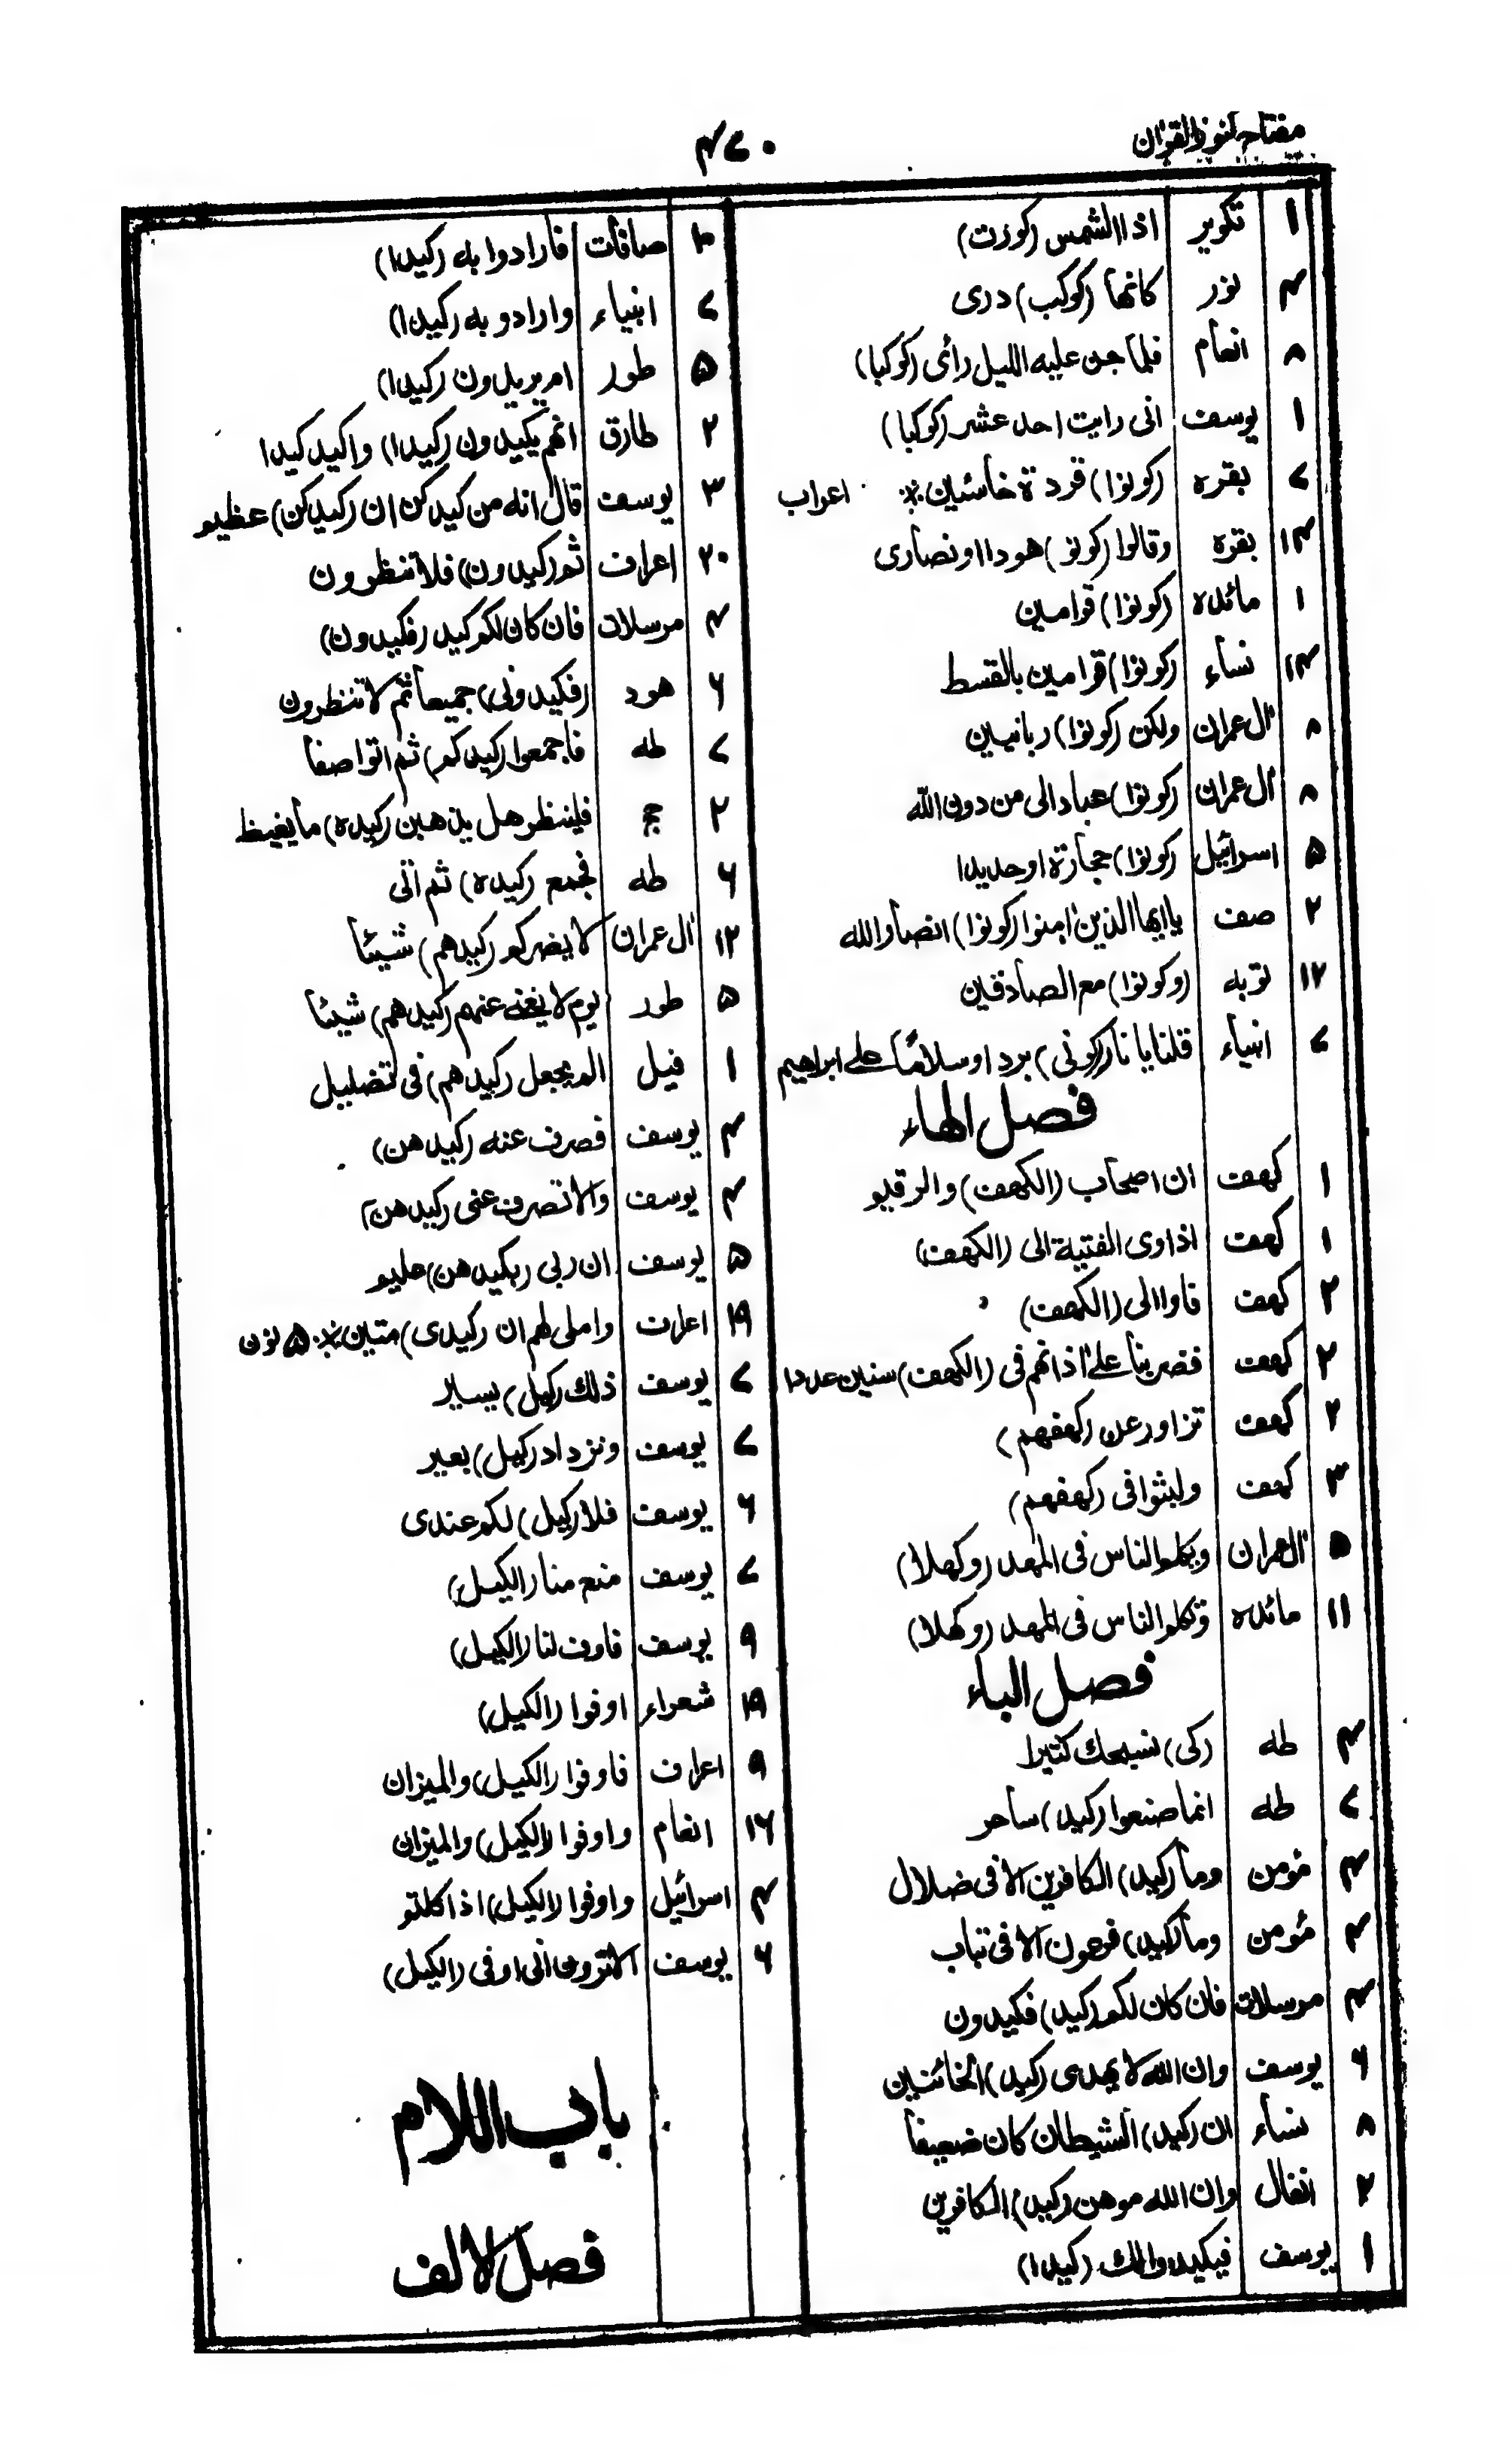 مفتاح كنوز القران
۴۷۰
۱ تكوير اذا الشمس (كورت)
۴ نور كانها (كوكب) درى
۸ انعام فلما جن عليه الليل رأى (كوكبا)
۱ يوسف انى رايت احد عشر (كوكبا)
۷ بقره (كونوا) قردة خاسئين ٭ اعراب
۱۴ بقره وقالوا (كونو) هودا او نصارى
۱ مائده (كونوا) قوامين
۱۴ نساء (كونوا) قوامين بالقسط
۸ ال عمران ولكن (كونوا) ربانيين
۸ ال عمران (كونوا) عبادا لى من دون الله
۵ اسرائيل (كونوا) حجارة او حديدا
۲ صف يا ايها الذين امنوا (كونوا) انصار الله
۱۲ توبه (وكونوا) مع الصادقين
۷ انبياء قلنا يا نار (كونى) بردا وسلاما على ابراهيم
فصل الهاء
۱ كهف ان اصحاب (الكهف) والرقيم
۱ كهف اذ اوى الفتية الى (الكهف)
۲ كهف فاوا الى (الكهف)
۲ كهف فضربنا على اذانهم فى (الكهف) سنين عددا
۲ كهف تزاور عن (كهفهم)
۳ كهف ولبثوا فى (كهفهم)
۵ ال عمران ويكلم الناس فى المهد (وكهلا)
۱۱ مائده وتكلم الناس فى المهد (وكهلا)
فصل الياء
۴ طه (كى) نسبحك كثيرا
۷ طه انما صنعوا (كيد) ساحر
۴ مؤمن وما (كيد) الكافرين الا فى ضلال
۴ مؤمن وما (كيد) فرعون الا فى تباب
۴ مرسلات فان كان لكم (كيد) فكيدون
۶ يوسف وان الله لا يهدى (كيد) الخائنين
۸ نساء ان (كيد) الشيطان كان ضعيفا
۲ انفال وان الله موهن (كيد) الكافرين
۱ يوسف فيكيدوا لك (كيدا)
۱۰ صافات فارادوا به (كيدا)
۷ انبياء وارادو به (كيدا)
۵ طور ام يريدون (كيدا)
۲ طارق انهم يكيدون (كيدا) واكيد كيدا
۳ يوسف قال انه من كيدكن ان (كيدكن) عظيم
۲۰ اعراف ثم (كيدون) فلا تنظرون
۴ مرسلات فان كان لكم كيد (فكيدون)
۶ هود (فكيدونى) جميعا ثم لا تنظرون
۷ طه فاجمعوا (كيدكم) ثم اتوا صفا
۲ حج فلينظر هل يذهبن (كيده) ما يغيظ
۶ طه فجمع (كيده) ثم اتى
۱۲ ال عمران لا يضركم (كيدهم) شيئا
۵ طور يوم لا يغنى عنهم (كيدهم) شيئا
۱ فيل الم يجعل (كيدهم) فى تضليل
۴ يوسف فصرف عنه (كيدهن)
۴ يوسف والا تصرف عنى (كيدهن)
۵ يوسف ان ربى (بكيدهن) عليم
۱۹ اعراف واملى لهم ان (كيدى) متين ٭ ۵ نون
۷ يوسف ذلك (كيل) يسير
۷ يوسف ونزداد (كيل) بعير
۶ يوسف فلا (كيل) لكم عندى
۷ يوسف منع منا (الكيل)
۹ يوسف فاوف لنا (الكيل)
۱۹ شعراء اوفوا (الكيل)
۹ اعراف فاوفوا (الكيل) والميزان
۱۶ انعام واوفوا (الكيل) والميزان
۴ اسرائيل واوفوا (الكيل) اذا كلتم
۶ يوسف الا ترون انى اوفى (الكيل)
باب اللام
فصل الالف